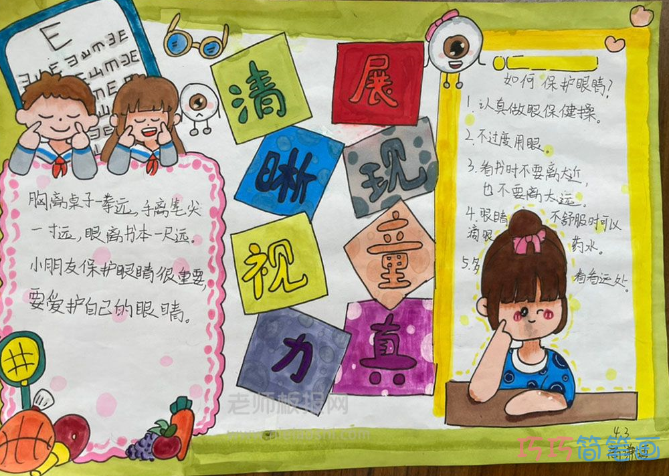 E
清
晰
视
力
展
现
童
真
胸离桌子一拳远，手离笔尖
一寸远，眼离书本一尺远。
小朋友保护眼睛很重要，
要爱护自己的眼睛。
如何保护眼睛？
1. 认真做眼保健操。
2. 不过度用眼。
3. 看书时不要离太近，
也不要离太远。
4. 眼睛 不舒服时可以
滴眼 药水。
5. 看看远处。
4.3
老师板报网
巧巧简笔画